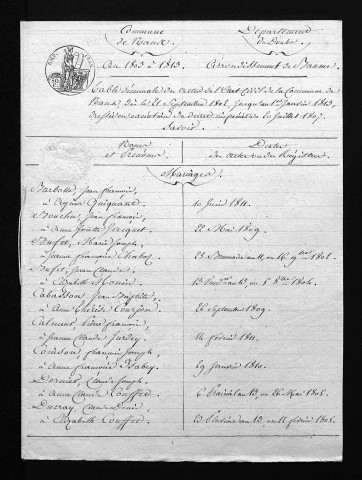 Commune
de Nans.
Département
du Doubs.
An 1803 à 1813.
Arrondissement de Baume.
Table décennale des actes de l'Etat Civil de la Commune de
Nans, dès le 21 Septembre 1802, jusqu'au 1er Janvier 1813,
dressée en exécution du décret impérial du 20 Juillet 1807.
Savoir.
Noms
et Prénoms.
Dates
des actes ou des Registres.
Mariages.
Barbotte, Jean françois,
à Quiquand.
10 Juin 1811.
Bouchu, Jean françois,
à Anne Jacquet.
22 Mai 1809.
Bufet, Marie Joseph,
à Jeanne françoise
23 Brumaire an 11, ou 14 9bre 1802.
Bufet, Jean Claude,
à Elizabeth Monin.
13 Vendre an 13, ou 5 8bre 1804.
Cabasson, Jean Baptiste,
à Anne Thérèse
26 Septembre 1809.
françois,
à Jeanne Claude
14 février 1811.
françois Joseph,
à Anne françoise
29 Janvier 1810.
Dornier, Claude Joseph,
à Anne Claude
6 Prairial an 13, ou 26 Mai 1805.
Ducray, Claude Denis,
à Elizabeth
23 Pluviôse an 13, ou 12 février 1805.